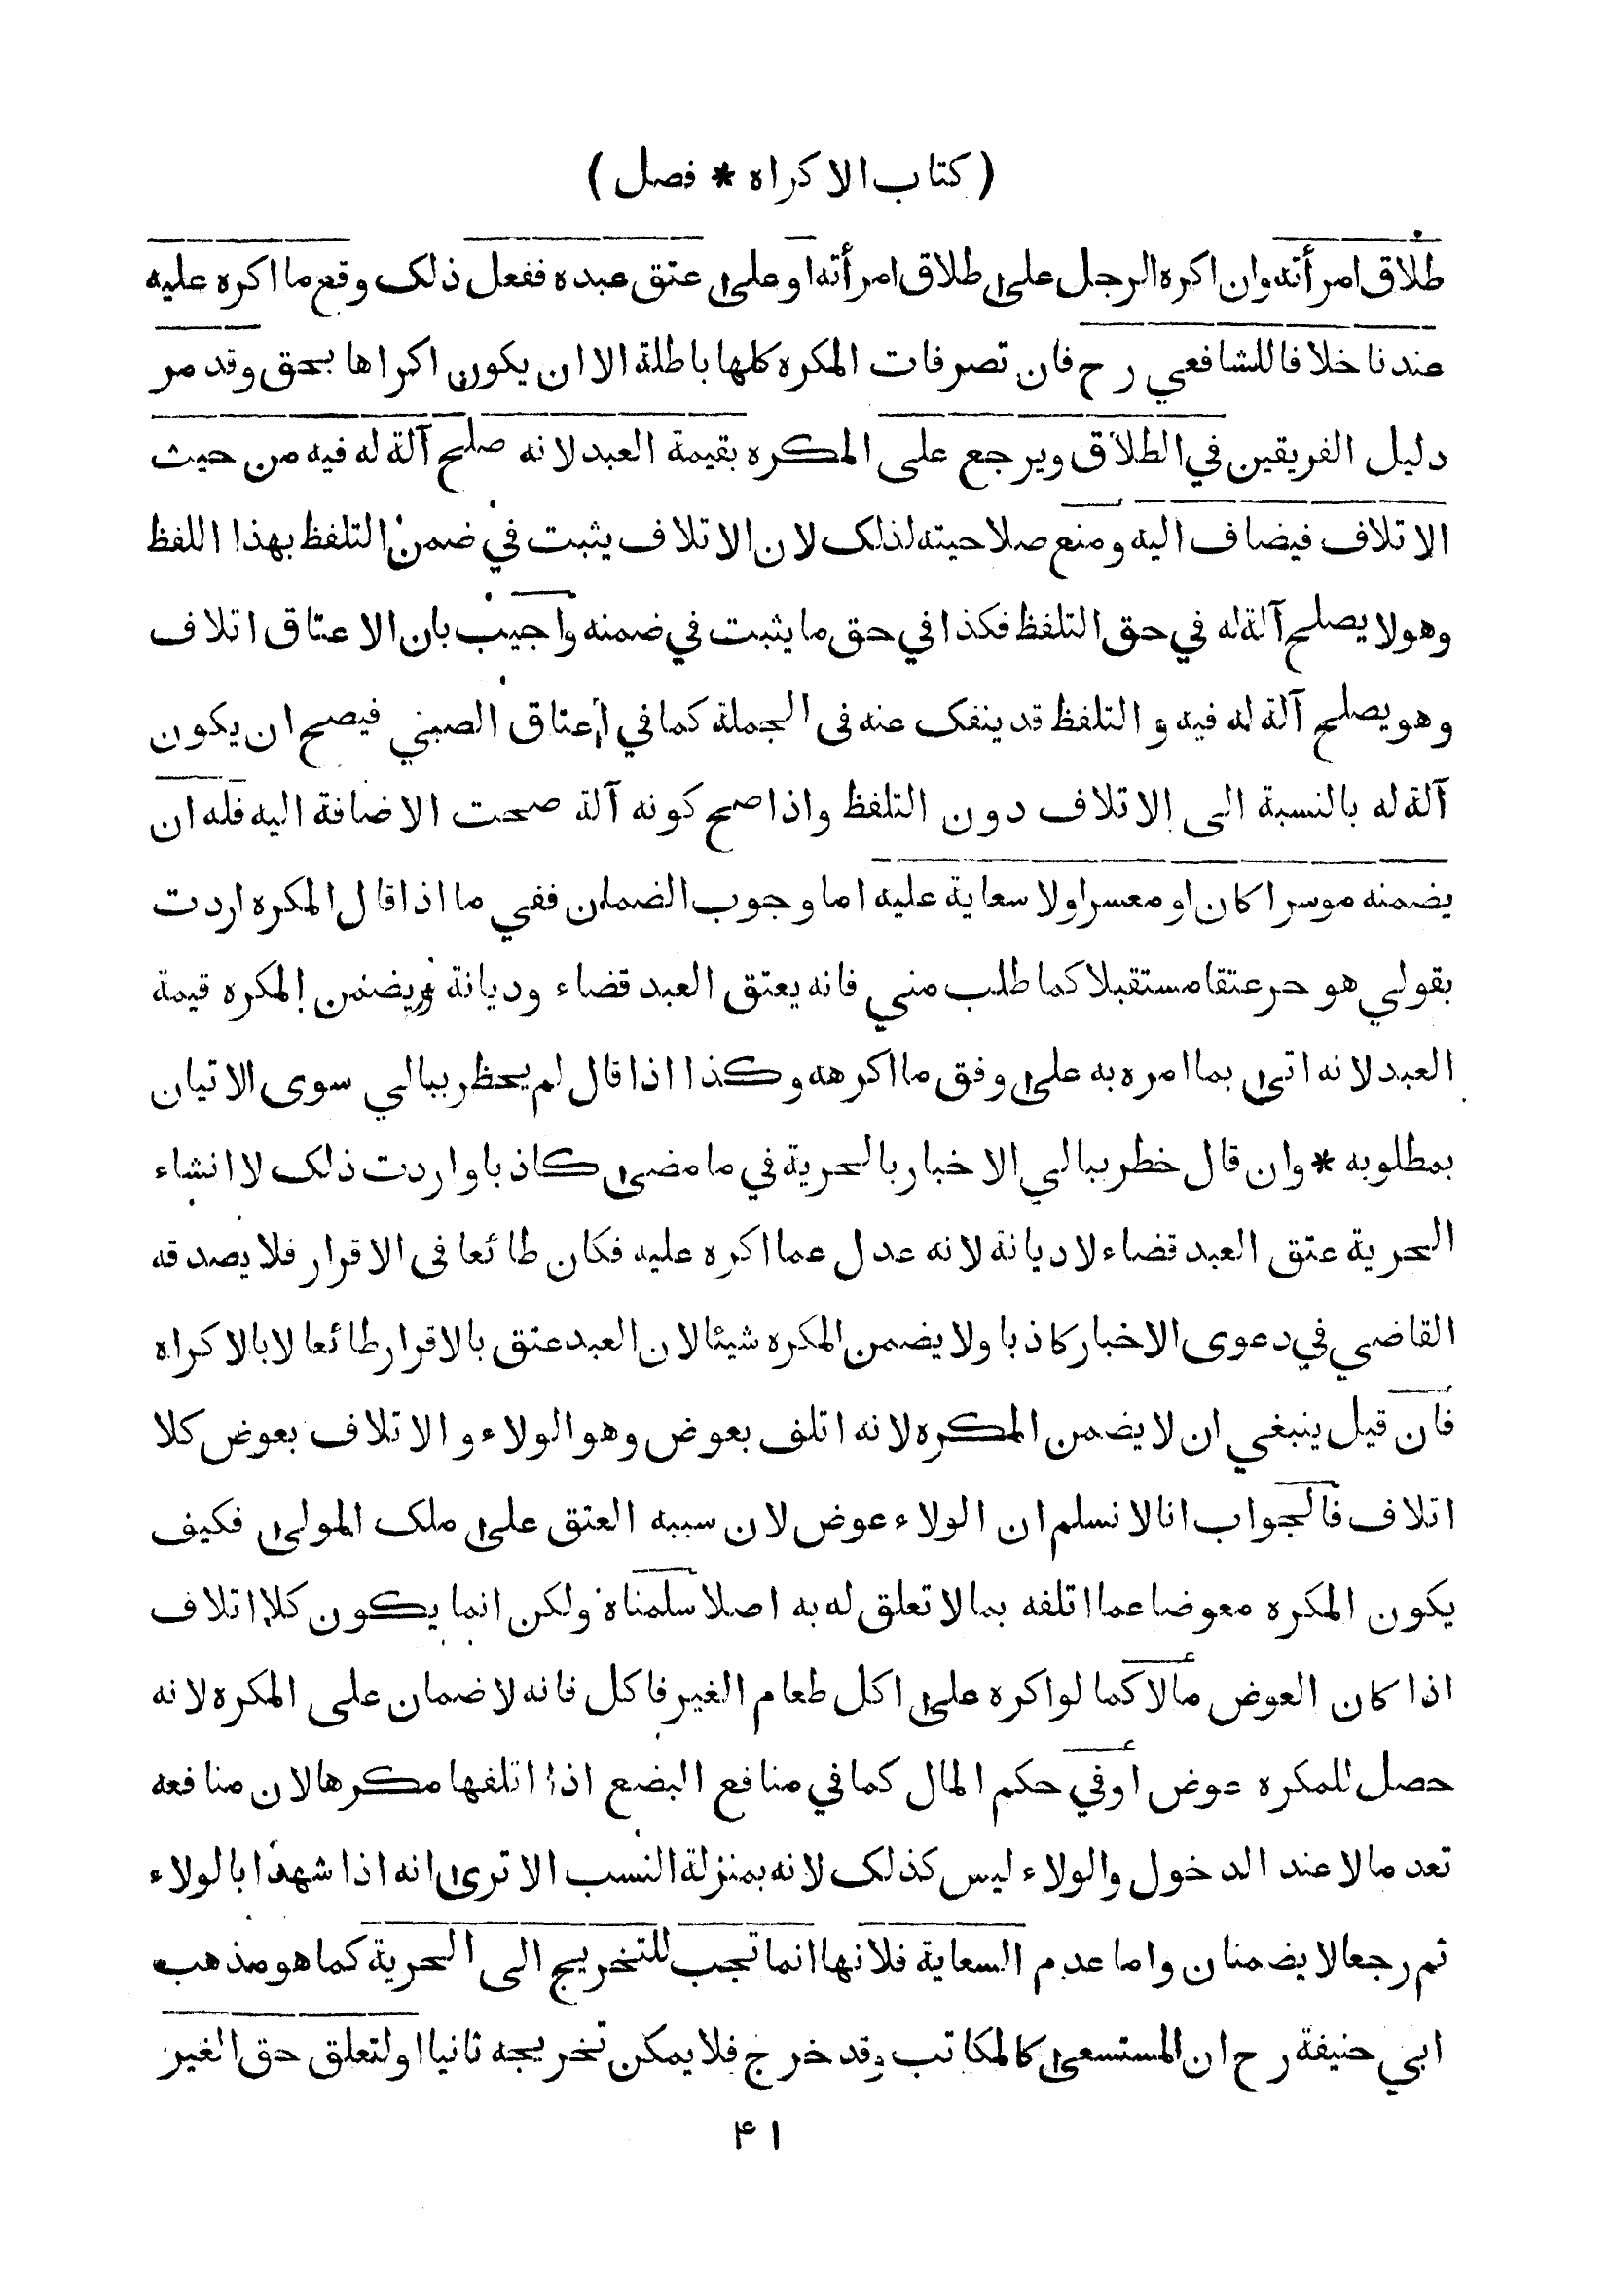 ( كتاب الاكراه * فصل )
طلاق امرأته وان اكره الرجل على طلاق امرأته او على عتق عبده ففعل ذلك وقع ما اكره عليه
عندنا خلافا للشافعي رح فان تصرفات المكره كلها باطلة الا ان يكون اكراها بحق وقد مر
دليل الفريقين في الطلاق ويرجع على المكره بقيمة العبد لانه صلح آلة له فيه من حيث
الاتلاف فيضاف اليه ومنع صلاحيته لذلك لان الاتلاف يثبت في ضمن التلفظ بهذا اللفظ
وهو لا يصلح آلة له في حق التلفظ فكذا في حق ما يثبت في ضمنه واجيب بان الاعتاق اتلاف
وهو يصلح آلة له فيه و التلفظ قد ينفك عنه فى الجملة كما في اعتاق الصبي فيصح ان يكون
آلة له بالنسبة الى الاتلاف دون التلفظ واذا صح كونه آلة صحت الاضافة اليه فله ان
يضمنه موسرا كان او معسرا ولا سعاية عليه اما وجوب الضمان ففي ما اذا قال المكره اردت
بقولي هو حر عتقا مستقبلا كما طلب مني فانه يعتق العبد قضاء وديانة ويضمن المكره قيمة
العبد لانه اتى بما امره به على وفق ما اكرهه وكذا اذا قال لم يحظر ببالي سوى الاتيان
بمطلوبه * وان قال خطر ببالي الاخبار بالحرية في ما مضى كاذبا واردت ذلك لا انشاء
الحرية عتق العبد قضاء لا ديانة لانه عدل عما اكره عليه فكان طائعا فى الاقرار فلا يصدقه
القاضي في دعوى الاخبار كاذبا ولا يضمن المكره شيئا لان العبد عتق بالاقرار طائعا لا بالاكراه
فان قيل ينبغي ان لا يضمن المكره لانه اتلف بعوض وهو الولاء و الاتلاف بعوض كلا
اتلاف فالجواب انا لا نسلم ان الولاء عوض لان سببه العتق على ملك المولى فكيف
يكون المكره معوضا عما اتلفه بما لا تعلق له به اصلا سلمناه ولكن انما يكون كلا اتلاف
اذا كان العوض مالا كما لو اكره على اكل طعام الغير فاكل فانه لا ضمان على المكره لانه
حصل للمكره عوض او في حكم المال كما في منافع البضع اذا اتلفها مكرها لان منافعه
تعد مالا عند الدخول والولاء ليس كذلك لانه بمنزلة النسب الا ترى انه اذا شهدا بالولاء
ثم رجعا لا يضمنان واما عدم السعاية فلانها انما تجب للتخريج الى الحرية كما هو مذهب
ابي حنيفة رح ان المستسعى كالمكاتب وقد خرج فلا يمكن تخريجه ثانيا او لتعلق حق الغير
۴۱